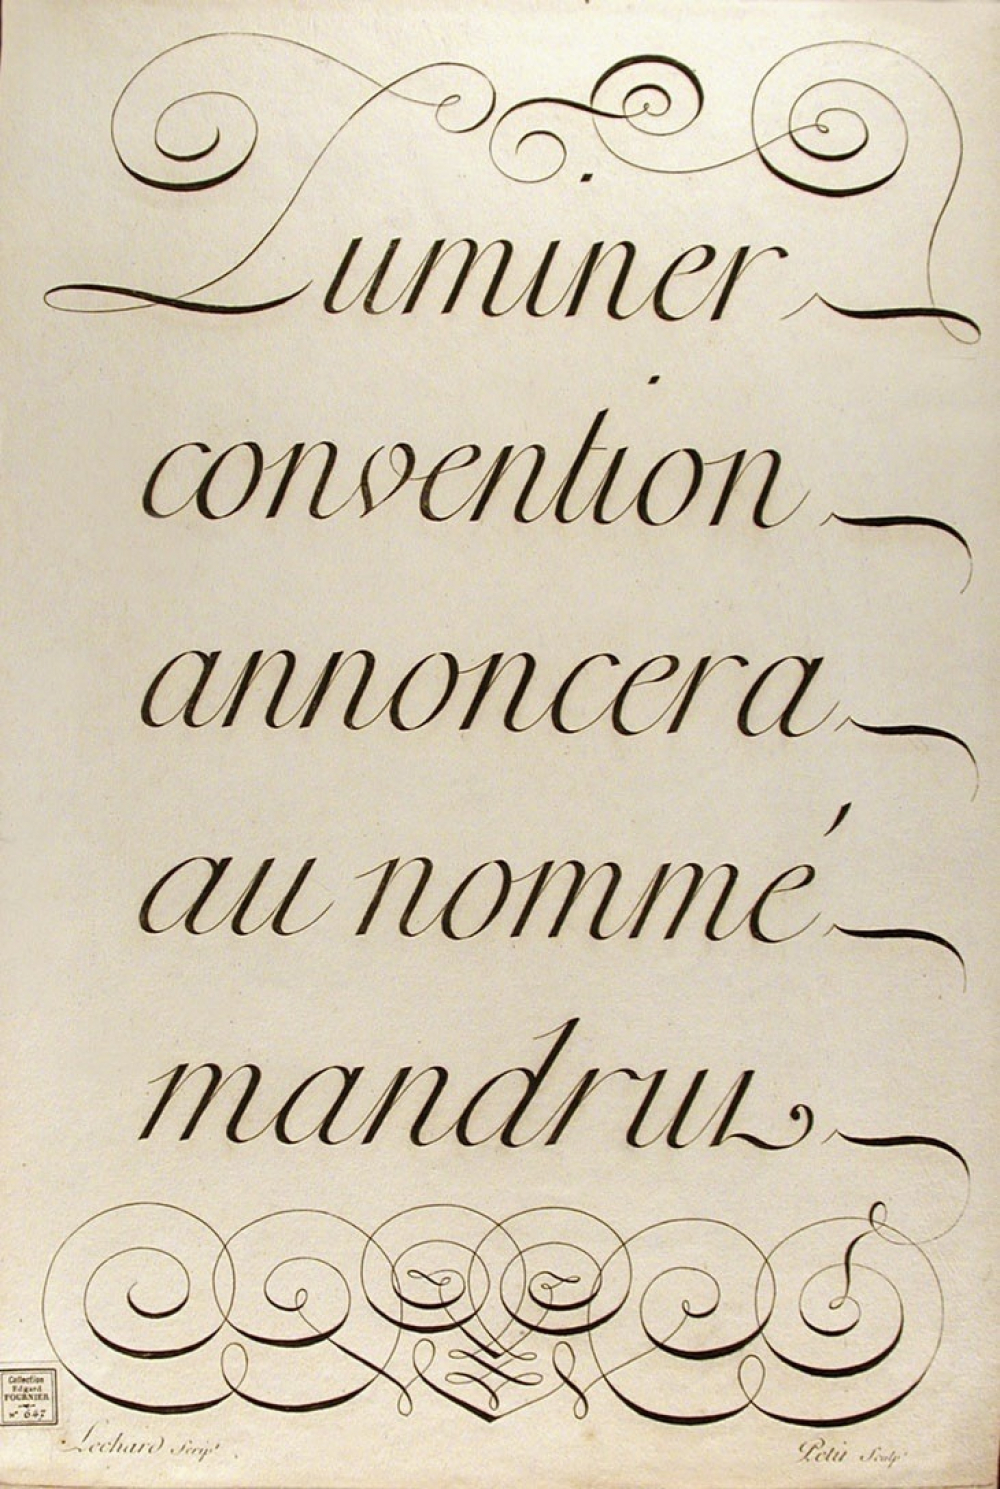 Luminer
convention
annoncera
au nommé
Collection
Edgard
FOURNIER
n° 647
Lechard Scrip.t Petit Sculp.t